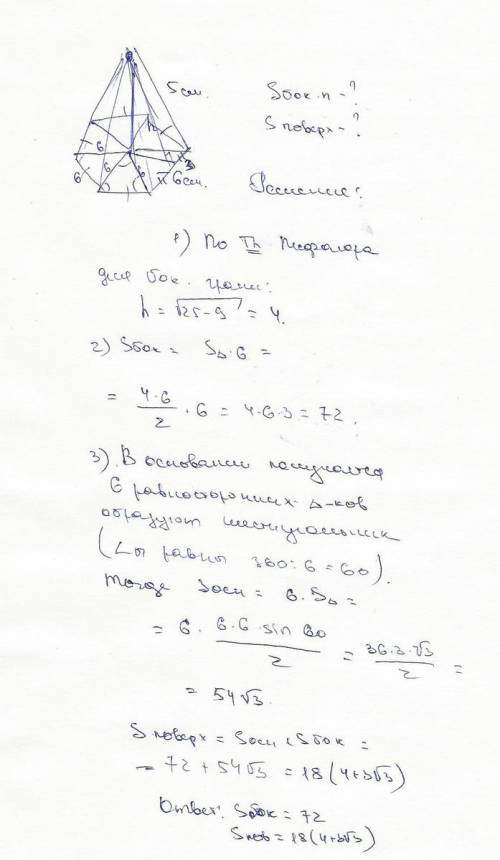 5 см.
Sбок.п - ?
S поверх - ?
h
6
6
6
6
3
6 см.
Решение:
1) По Th Пифагора
для бок. грани:
h = √25-9 = 4.
2) Sбок = S△·6 =
= 4·6/2 · 6 = 4·6·3 = 72.
3). В основании получается
6 равносторонних △-ков
образуют шестиугольник
(∠ы равны 360:6 = 60).
Тогда Sосн = 6·S△ =
= 6· 6·6·sin 60/2 = 36·3·√3/2 =
= 54√3.
S поверх = Sосн + Sбок =
= 72 + 54√3 = 18(4+3√3)
Ответ: Sбок = 72
Sпов = 18(4+3√3)